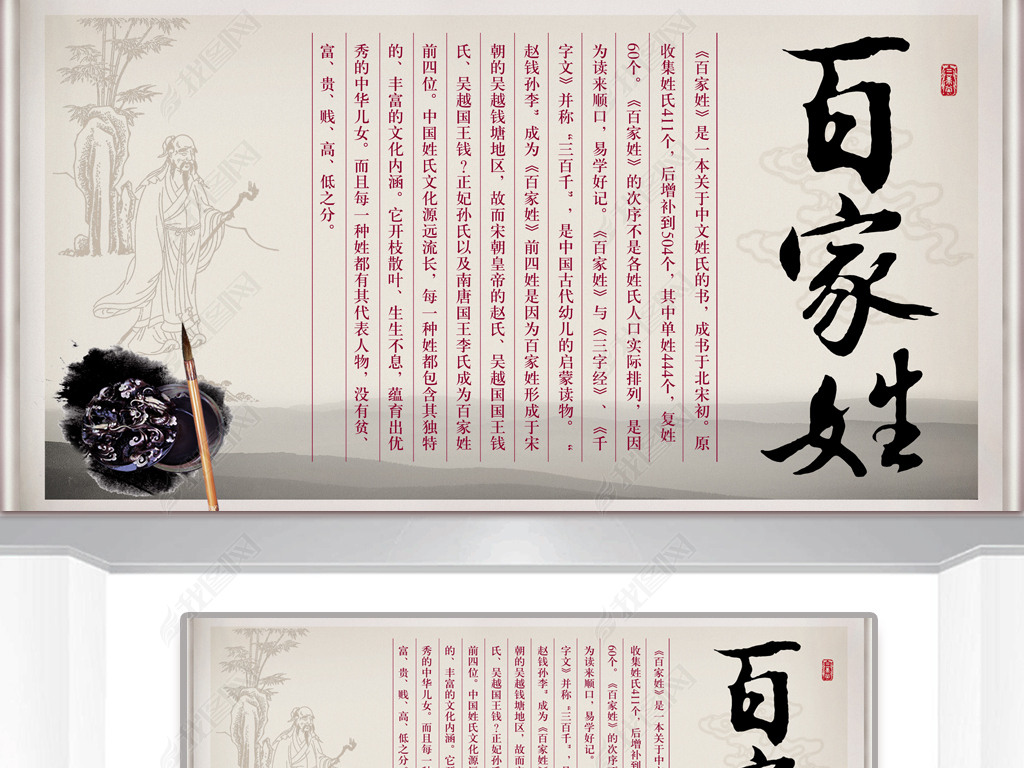 百家姓
《百家姓》是一本关于中文姓氏的书，成书于北宋初。原
收集姓氏411个，后增补到504个，其中单姓444个，复姓
60个。《百家姓》的次序不是各姓氏人口实际排列，是因
为读来顺口，易学好记。《百家姓》与《三字经》、《千
字文》并称“三百千”，是中国古代幼儿的启蒙读物。“
赵钱孙李”成为《百家姓》前四姓是因为百家姓形成于宋
朝的吴越钱塘地区，故而宋朝皇帝的赵氏、吴越国国王钱
氏、吴越国王钱？正妃孙氏以及南唐国王李氏成为百家姓
前四位。中国姓氏文化源远流长，每一种姓都包含其独特
的、丰富的文化内涵。它开枝散叶、生生不息，蕴育出优
秀的中华儿女。而且每一种姓都有其代表人物，没有贫、
富、贵、贱、高、低之分。
百家
《百家姓》是一本关于
收集姓氏411个，后增补到
60个。《百家姓》的次序不
为读来顺口，易学好记。
字文》并称“三百千”，是
赵钱孙李”成为《百家姓
朝的吴越钱塘地区，故而
氏、吴越国王钱？正妃孙
前四位。中国姓氏文化源
的、丰富的文化内涵。它
秀的中华儿女。而且每一
富、贵、贱、高、低之分